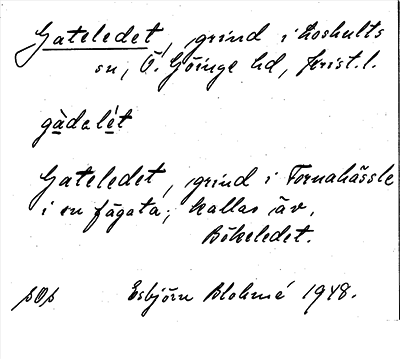 Gateledet, grind i Loshults
sn, Ö. Göinge hd, Krist. l.
gàdalét
Gateledet, grind i Tornahässle
i en fägata; kallas äv.
Bökeledet.
pop Esbjörn Blohmé 1948.